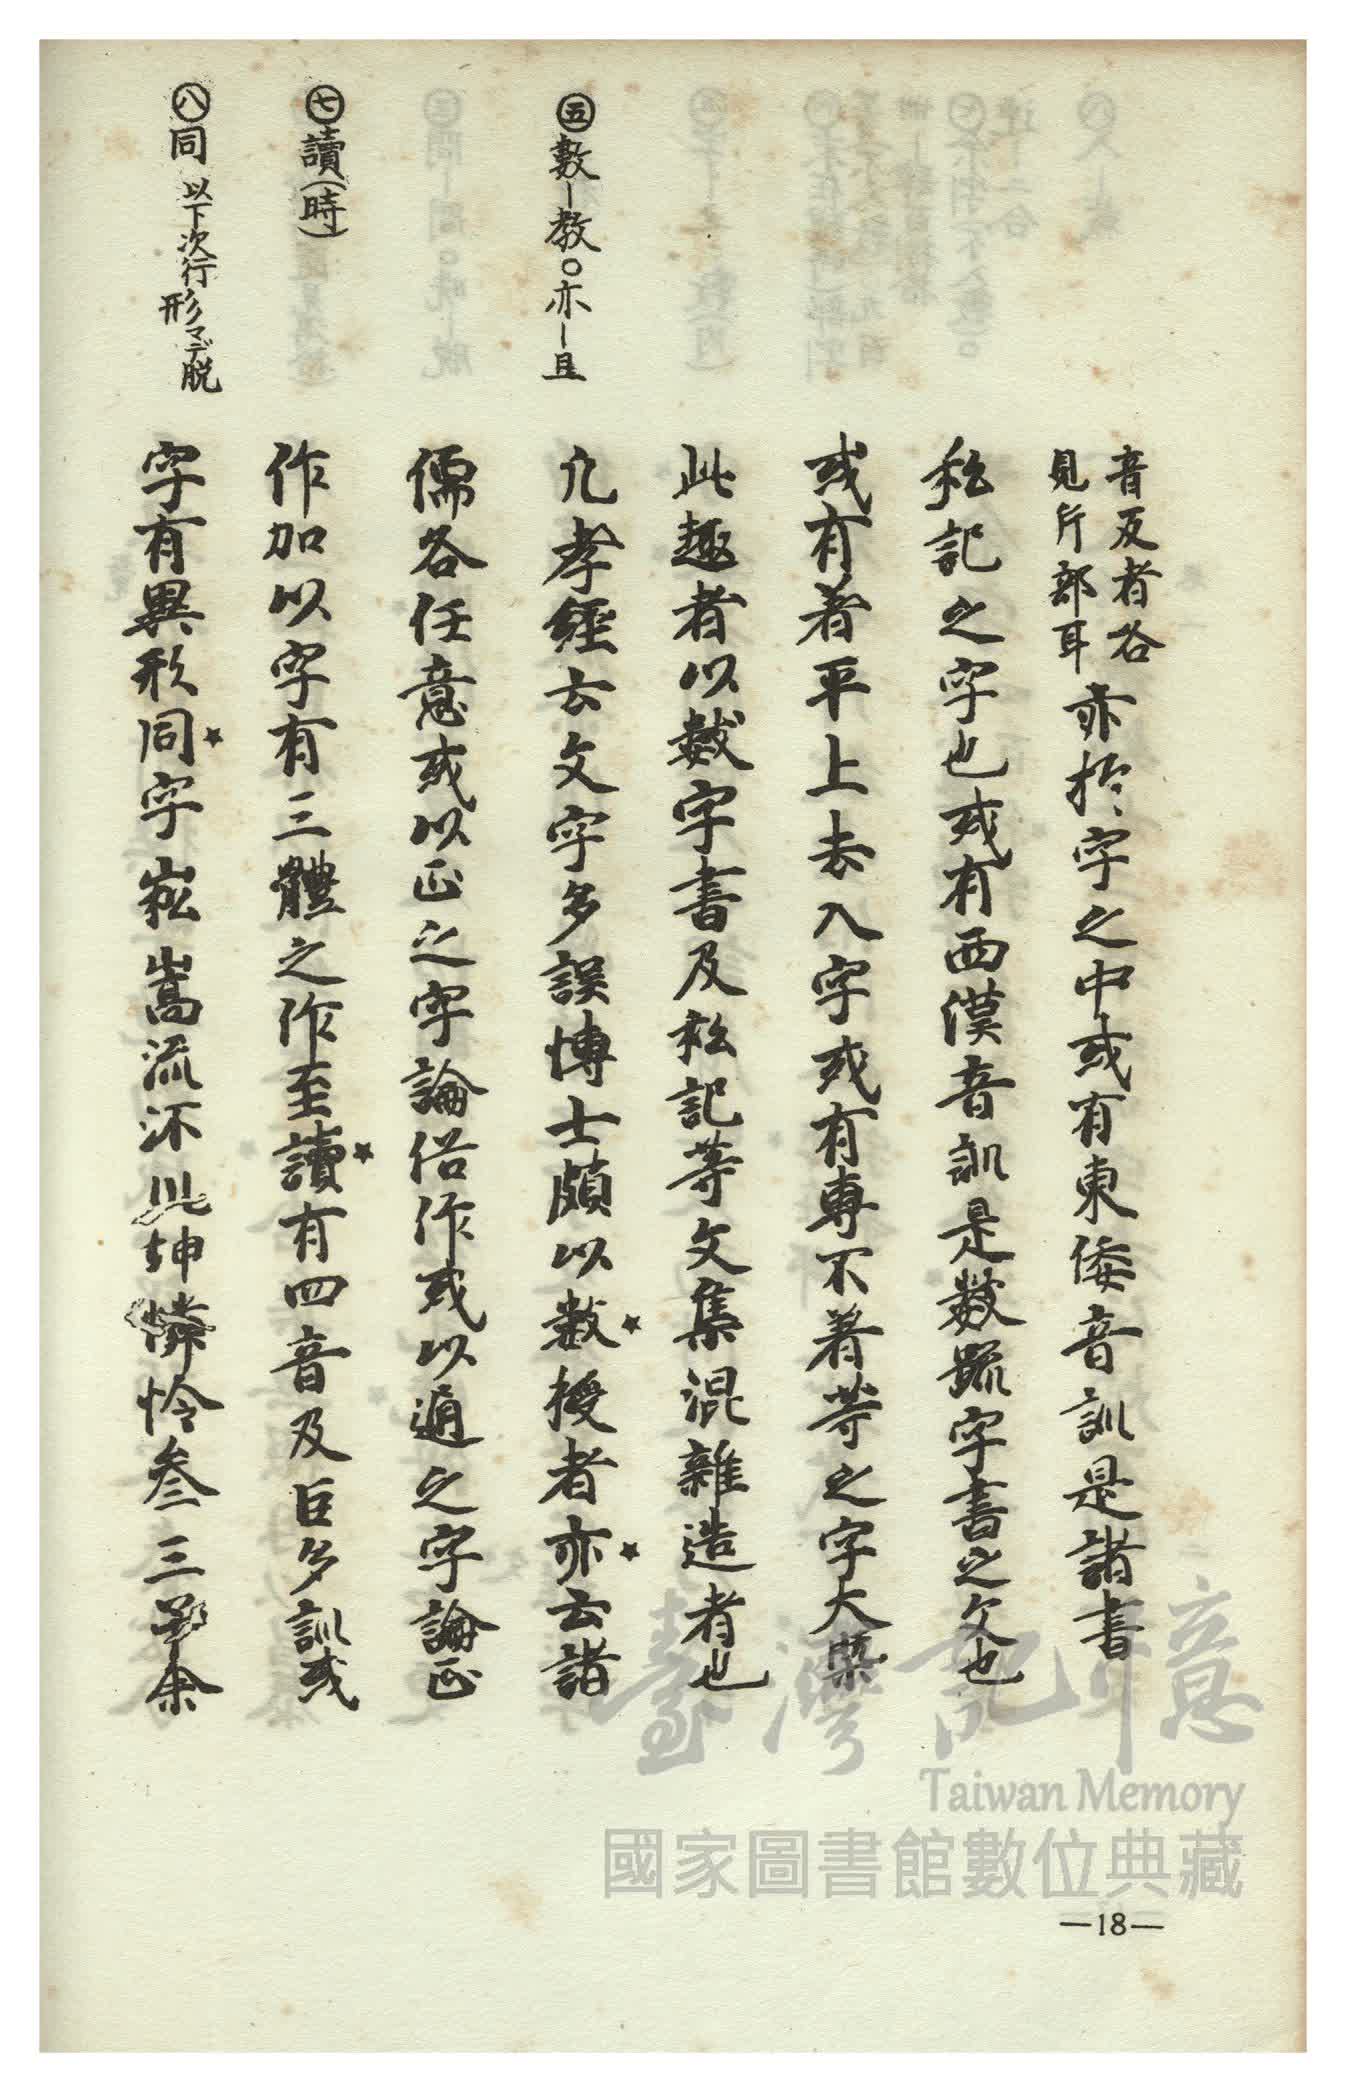 音反者各
見片部耳
亦於字之中或有東倭音訓是諸書
私記之字也或有西漢音訓是數疏字書之文也
或有着平上去入字或有專不着等之字大槩
此趣者以數字書及私記等文集混雜造者也
凢孝經云文字多誤博士頗以數授者亦云諸
儒各任意或以正之字論俗作或以通之字論正
作加以字有三體之作至讀有四音及巨多訓或
字有異形同字崧嵩流沠巛坤憐怜叁三予余
㊄數—教○亦—且
㊆讀(時)
㊇同 以下次行形マデ脫
臺灣記憶
Taiwan Memory
國家圖書館數位典藏
—18—